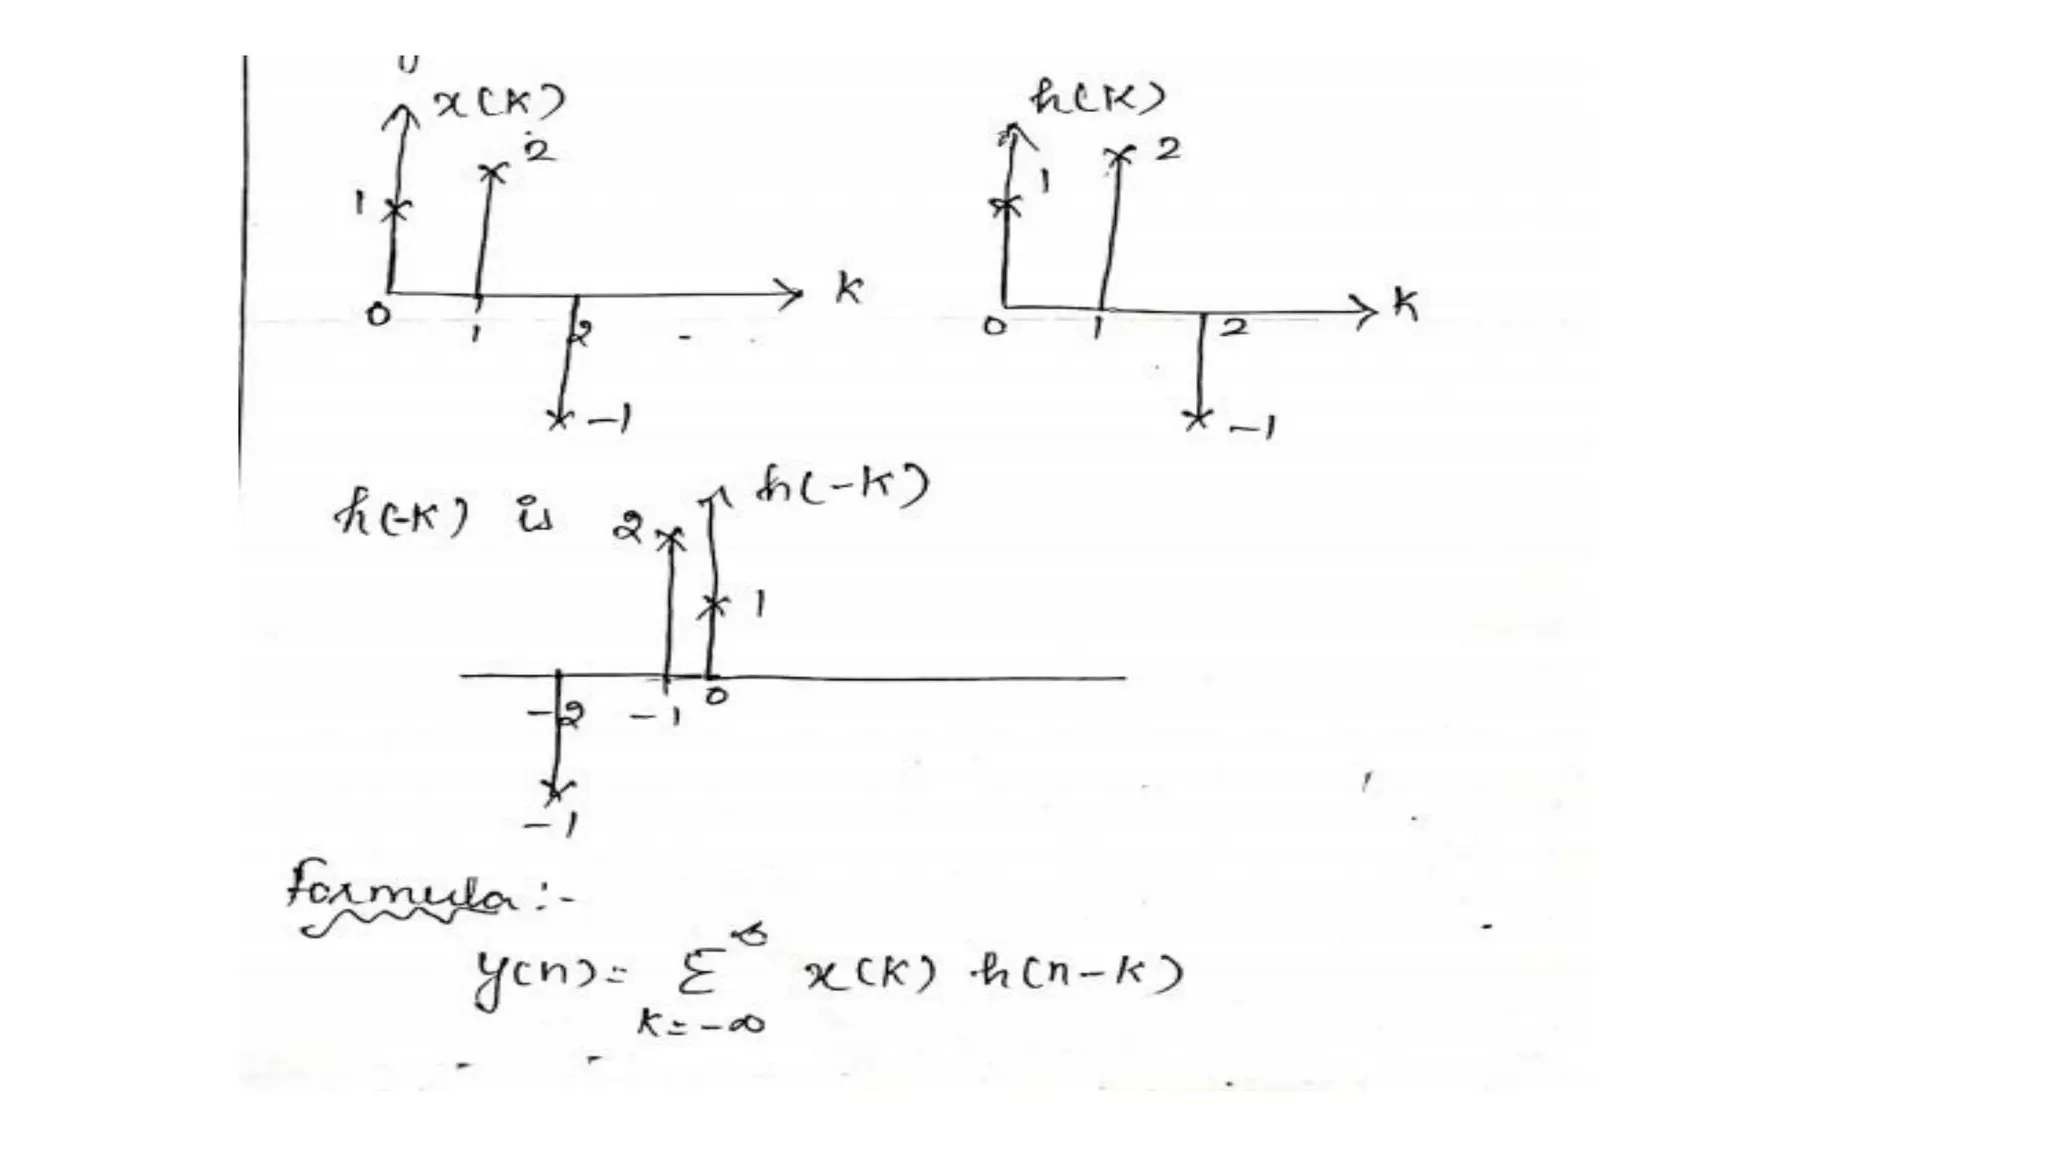 x(K)
h(K)
2
2
1
1
K
K
0
1
2
0
1
2
-1
-1
h(-K) is
h(-K)
2
1
-2
-1
0
-1
Formula :-
y(n) = Σ^∞ x(K) h(n-K)
K=-∞